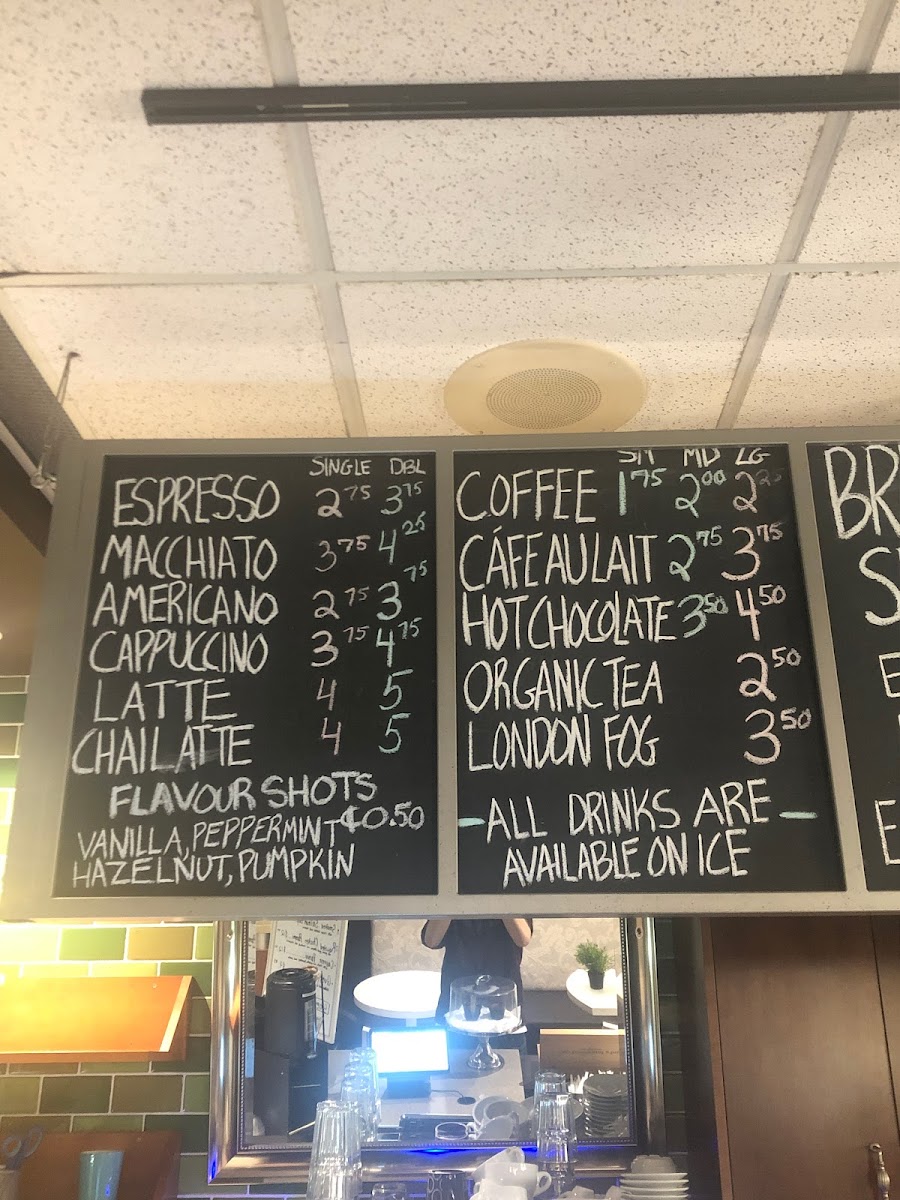 SINGLE DBL
ESPRESSO 2.75 3.75
MACCHIATO 3.75 4.25
AMERICANO 2.75 3.75
CAPPUCCINO 3.75 4.75
LATTE 4 5
CHAI LATTE 4 5
FLAVOUR SHOTS
¢0.50
VANILLA, PEPPERMINT
HAZELNUT, PUMPKIN
SM MD LG
COFFEE 1.75 2.00 2.25
CÁFE AU LAIT 2.75 3.75
HOT CHOCOLATE 3.50 4.50
ORGANIC TEA 2.50
LONDON FOG 3.50
-ALL DRINKS ARE-
AVAILABLE ON ICE
BR
S
E
E